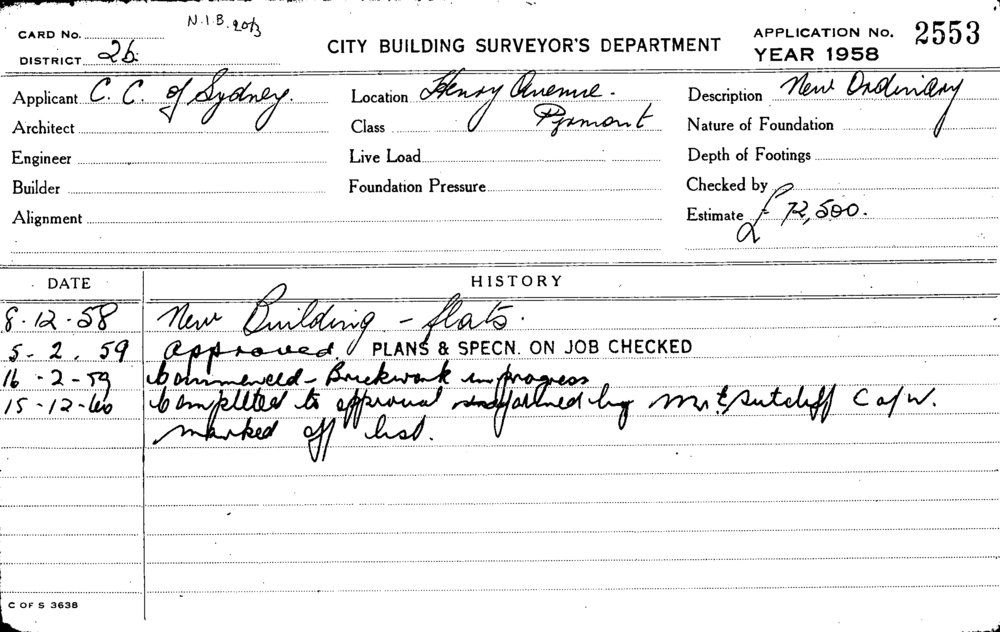 CARD No. N.I.B. 20/3
DISTRICT 2b.
CITY BUILDING SURVEYOR'S DEPARTMENT
APPLICATION No. 2553
YEAR 1958
Applicant C. C. of Sydney. Location Henry Avenue. Description New Ordinary
Architect Class Pyrmont Nature of Foundation
Engineer Live Load Depth of Footings
Builder Foundation Pressure Checked by
Alignment Estimate £ 72,500.
DATE HISTORY
8-12-58 New Building - flats.
5-2.59 Approved. PLANS & SPECN. ON JOB CHECKED
16-2-59 Commenced - Brickwork in progress
15-12-60 Completed to approval informed by Mr Sutcliff C of W.
marked off list.
C OF S 3638